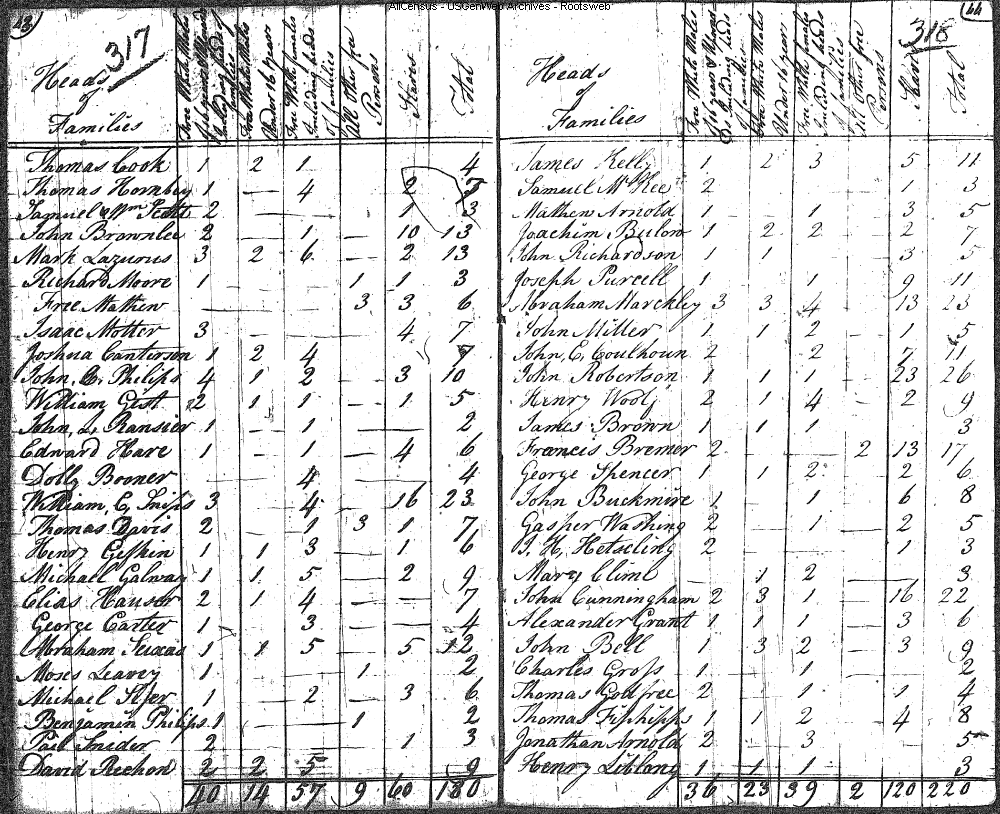 AllCensus - USGenWeb Archives - Rootsweb
43
317
Heads of Families
Free White Males of 16 years & upwards including heads of families
Free White Males Under 16 years
Free White females including heads of families
All other free Persons
Slaves
Total
Thomas Cook 1 2 1 4
Thomas Hornbey 1 — 4 2 7
Samuel & Wm Scott 2 — — — 1 3
John Brownlee 2 — 1 — 10 13
Mark Lazurous 3 2 6 — 2 13
Richard Moore 1 — — 1 1 3
Free Mathew — — — 3 3 6
Isaac Motter 3 — — — 4 7
Joshua Canterson 1 2 4 — 7
John, C, Philips 4 1 2 — 3 10
William Gist 2 1 1 — 1 5
John, L, Ransier 1 — 1 — — 2
Edward Hare 1 — 1 — 4 6
Dolly Booner — — 4 — — 4
William, C, Snips 3 — 4 — 16 23
Thomas Davis 2 — 1 3 1 7
Henry Gefkin 1 1 3 — 1 6
Michael Galway 1 1 5 — 2 9
Elias Hauser 2 1 4 — — 7
George Carter 1 — 3 — — 4
Abraham Seixas 1 1 5 — 5 12
Moses Leavey 1 — — 1 2
Michael 1 — 2 — 3 6
Benjamin Philips 1 — — 1 — 2
Paul Snider 2 — — — 1 3
David Rechon 2 2 5 — — 9
40 14 57 9 60 180
44
318
Heads of Families
Free White Males of 16 years & upwards including heads of families
Free White Males Under 16 years
Free White females including heads of families
All other free Persons
Slaves
Total
James Kelly 1 2 3 5 11
Samuel McKee 2 — — — 1 3
Mathew Arnold 1 — 1 — 3 5
Joachim Bulow 1 2 2 — 2 7
John Richardson 1 1 — — 3 5
Joseph Purcell 1 — 1 — 9 11
Abraham Marckley 3 3 4 — 13 23
John Miller 1 1 2 — 1 5
John, E, Coulhoun 2 2 — 7 11
John Robertson 1 1 1 — 23 26
Henry Woolf 2 1 4 — 2 9
James Brown 1 1 1 3
Francis Bremer 2 — — 2 13 17
George Spencer 1 1 2 — 2 6
John Buckmire 1 — 1 — 6 8
Gasper Washing 2 — 1 — 2 5
J, H, Hetseling 2 — — — 1 3
Mary Clime — 1 2 — — 3
John Cunningham 2 3 1 — 16 22
Alexander Grant 1 1 1 — 3 6
John Bell 1 3 2 — 3 9
Charles Gross 1 — 1 — — 2
Thomas Godfree 2 — 1 — 1 4
Thomas Fiphipps 1 1 2 — 4 8
Jonathan Arnold 2 — 3 — — 5
Henry Liblong 1 1 1 — — 3
36 23 39 2 120 220